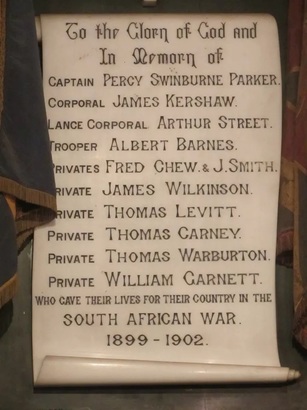 To the Glory of God and
In Memory of
CAPTAIN PERCY SWINBURNE PARKER.
CORPORAL JAMES KERSHAW.
LANCE CORPORAL ARTHUR STREET.
TROOPER ALBERT BARNES.
PRIVATES FRED CHEW. & J. SMITH.
PRIVATE JAMES WILKINSON.
PRIVATE THOMAS LEVITT.
PRIVATE THOMAS CARNEY.
PRIVATE THOMAS WARBURTON.
PRIVATE WILLIAM GARNETT.
WHO GAVE THEIR LIVES FOR THEIR COUNTRY IN THE
SOUTH AFRICAN WAR.
1899 - 1902.